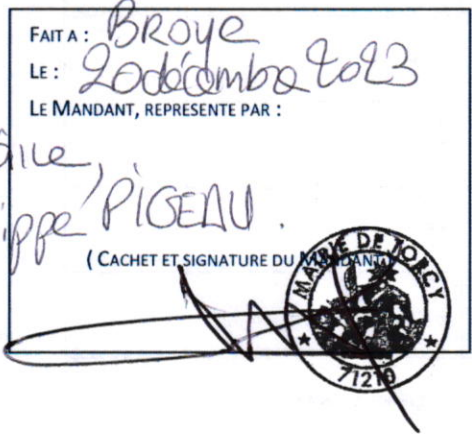 FAIT A : BROYE
LE : 20 décembre 2023
LE MANDANT, REPRESENTE PAR :
PIGEAU.
( CACHET ET SIGNATURE DU MANDANT )
MAIRIE DE TORCY
71210